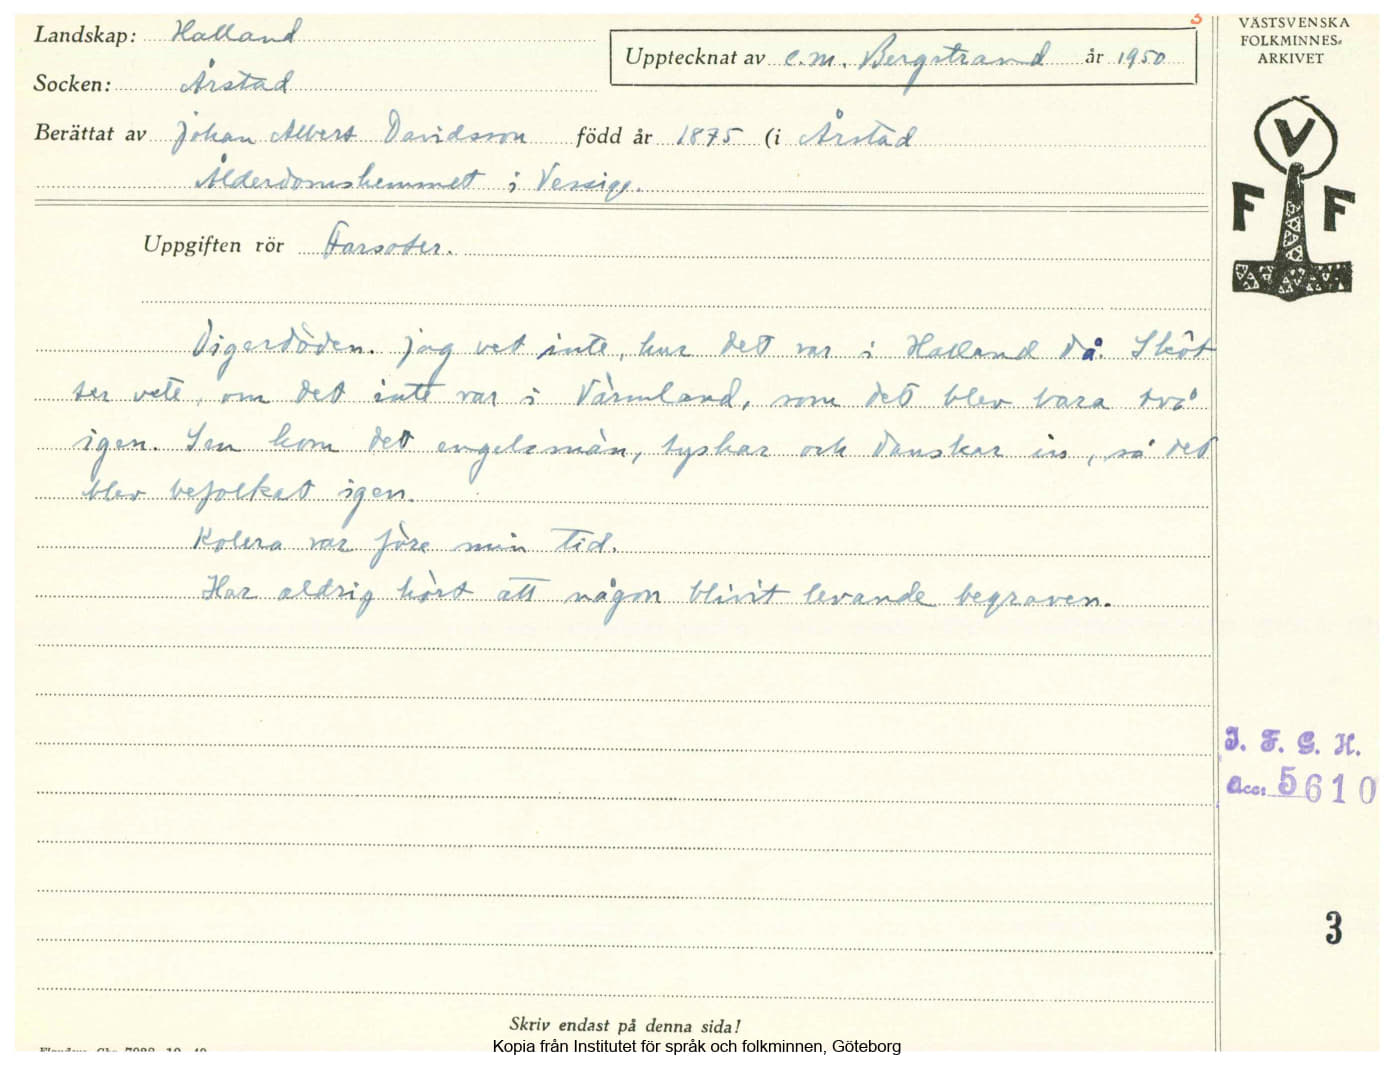 3
Landskap: Halland
Upptecknat av C. M. Bergstrand år 1950
VÄSTSVENSKA
FOLKMINNES-
ARKIVET
Socken: Årstad
Berättat av Johan Albert Davidsson född år 1875 (i Årstad
Ålderdomshemmet i Vessige.
V
F F
Uppgiften rör Farsoter.
Digerdöden. Jag vet inte, hur det var i Halland då. Sköt
ter vete, om det inte var i Värmland, som det blev bara två
igen. Sen kom det engelsmän, tyskar och danskar in, så det
blev befolkat igen.
Kolera var före min tid.
Har aldrig hört att någon blivit levande begraven.
I. F. G. H.
Acc: 5610
3
Skriv endast på denna sida!
Kopia från Institutet för språk och folkminnen, Göteborg